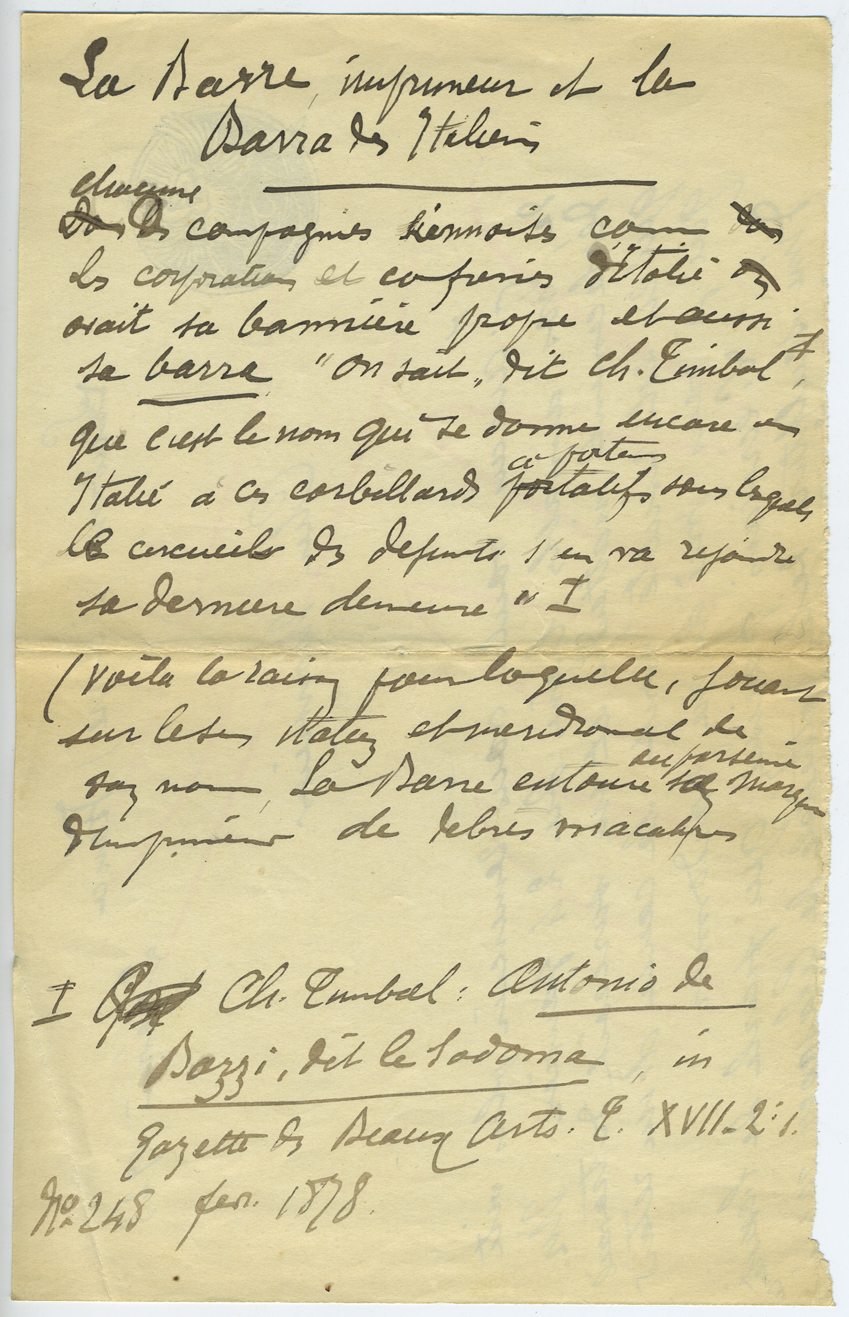 La Barre, imprimeur et la
Barra des Italiens
chacune
des compagnies siennoises comme
les corporations et confréries d'Italie
avait sa bannière propre et aussi
sa barra. "On sait, dit Ch. Timbal I,
que c'est le nom qui se donne encore en
Italie à ces corbillards portatifs sous lesquels
à porteurs
le cercueil des defunts s'en va rejoindre
sa derniere demeure" I
(Voila la raison pour laquelle, jouant
sur le sens italien et meridional de
son nom, La Barre entoure ses marques
ou parseme
d'imprimeur de debris macabres
I Ch. Timbal : Antonio de
Bazzi, dit le Sodoma, in
Gazette des Beaux Arts. T. XVII. 2e
No. 248 fev. 1878.